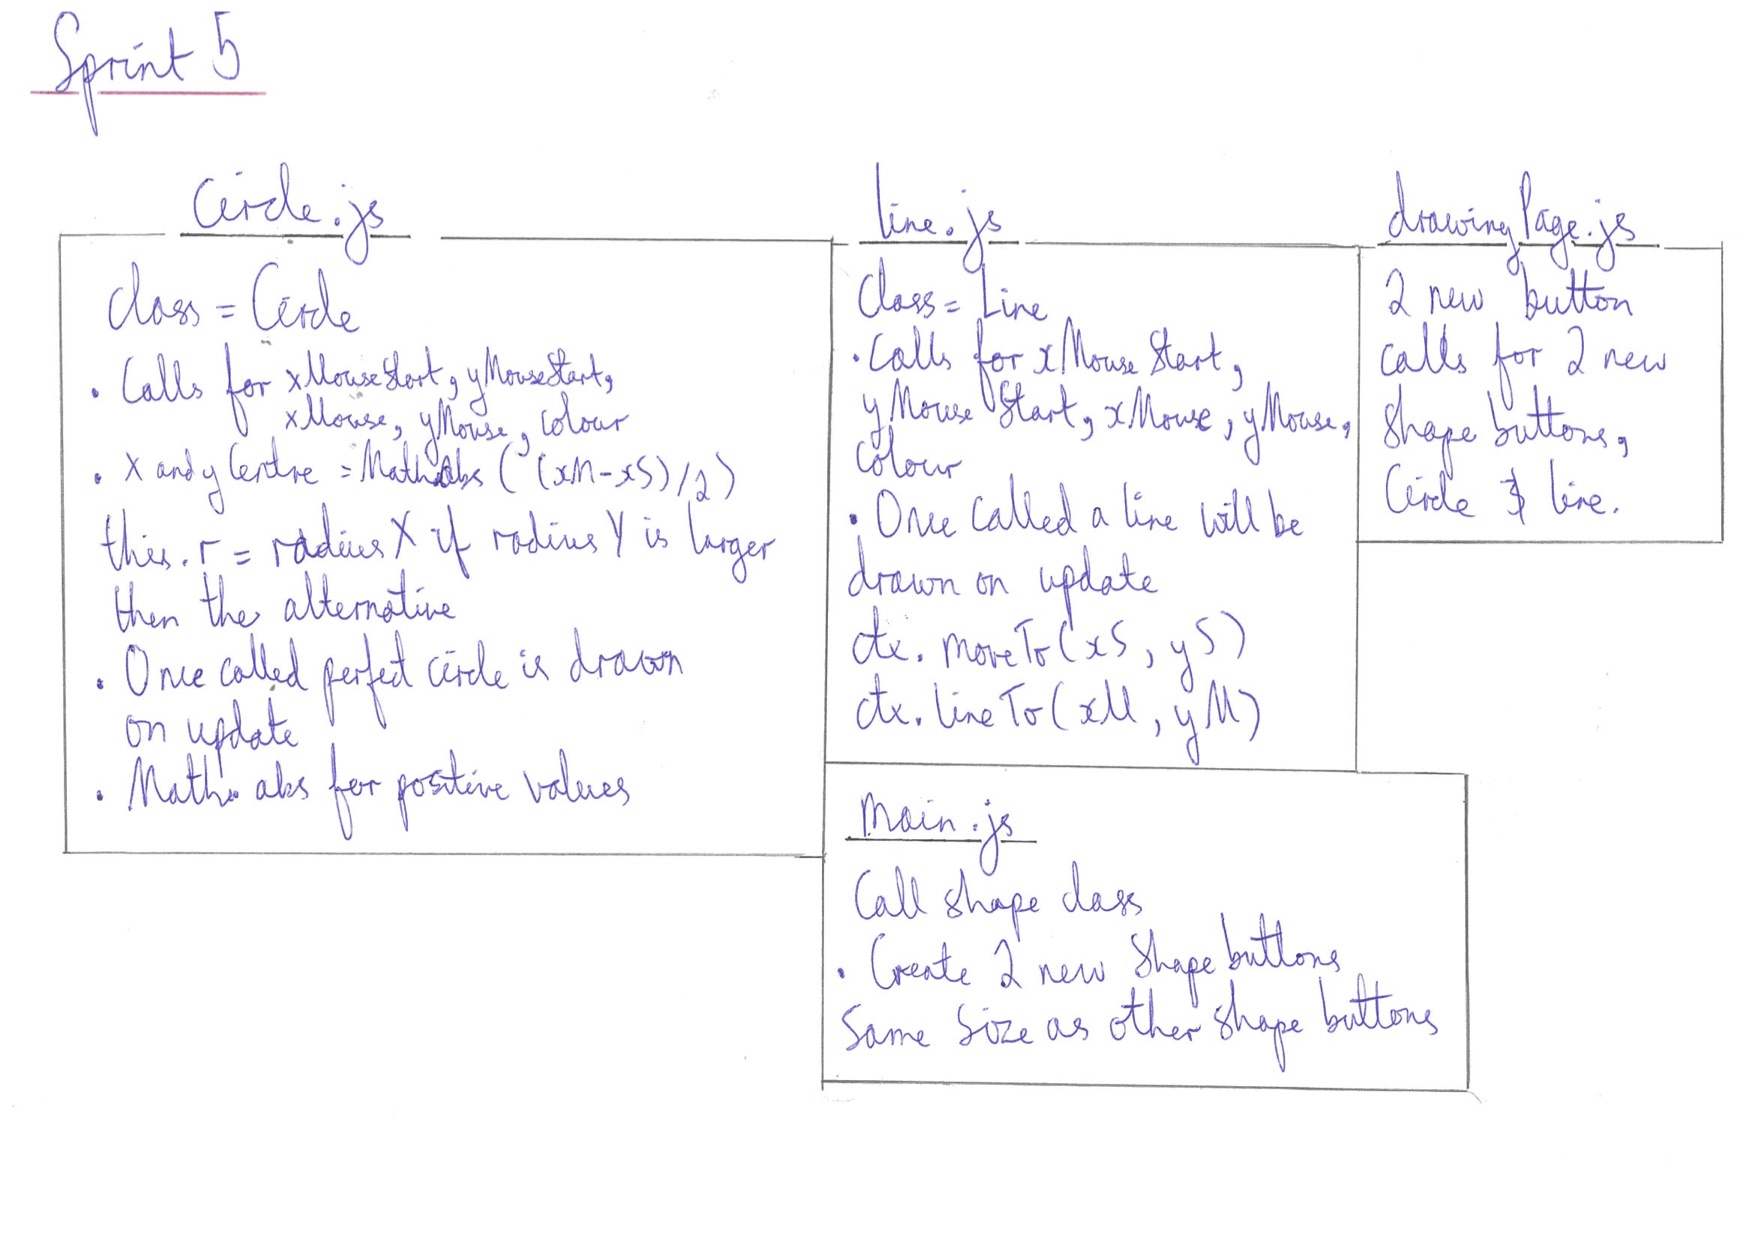 Sprint 5
Circle.js
class = Circle
• Calls for xMouseStart, yMouseStart,
xMouse, yMouse, colour
• X and y Centre = Math.abs ( (xM-xS)/2)
this.r = radius X if radius Y is larger
then the alternative
• Once called perfect circle is drawn
on update
• Math.abs for positive values
line.js
Class = Line
• Calls for xMouse Start,
yMouse Start, xMouse, yMouse,
Colour
• Once Called a line will be
drawn on update
ctx. moveTo(xS, yS)
ctx. lineTo(xM, yM)
drawingPage.js
2 new button
calls for 2 new
shape buttons,
Circle & line.
Main.js
Call shape class
• Create 2 new Shape buttons
Same Size as other shape buttons